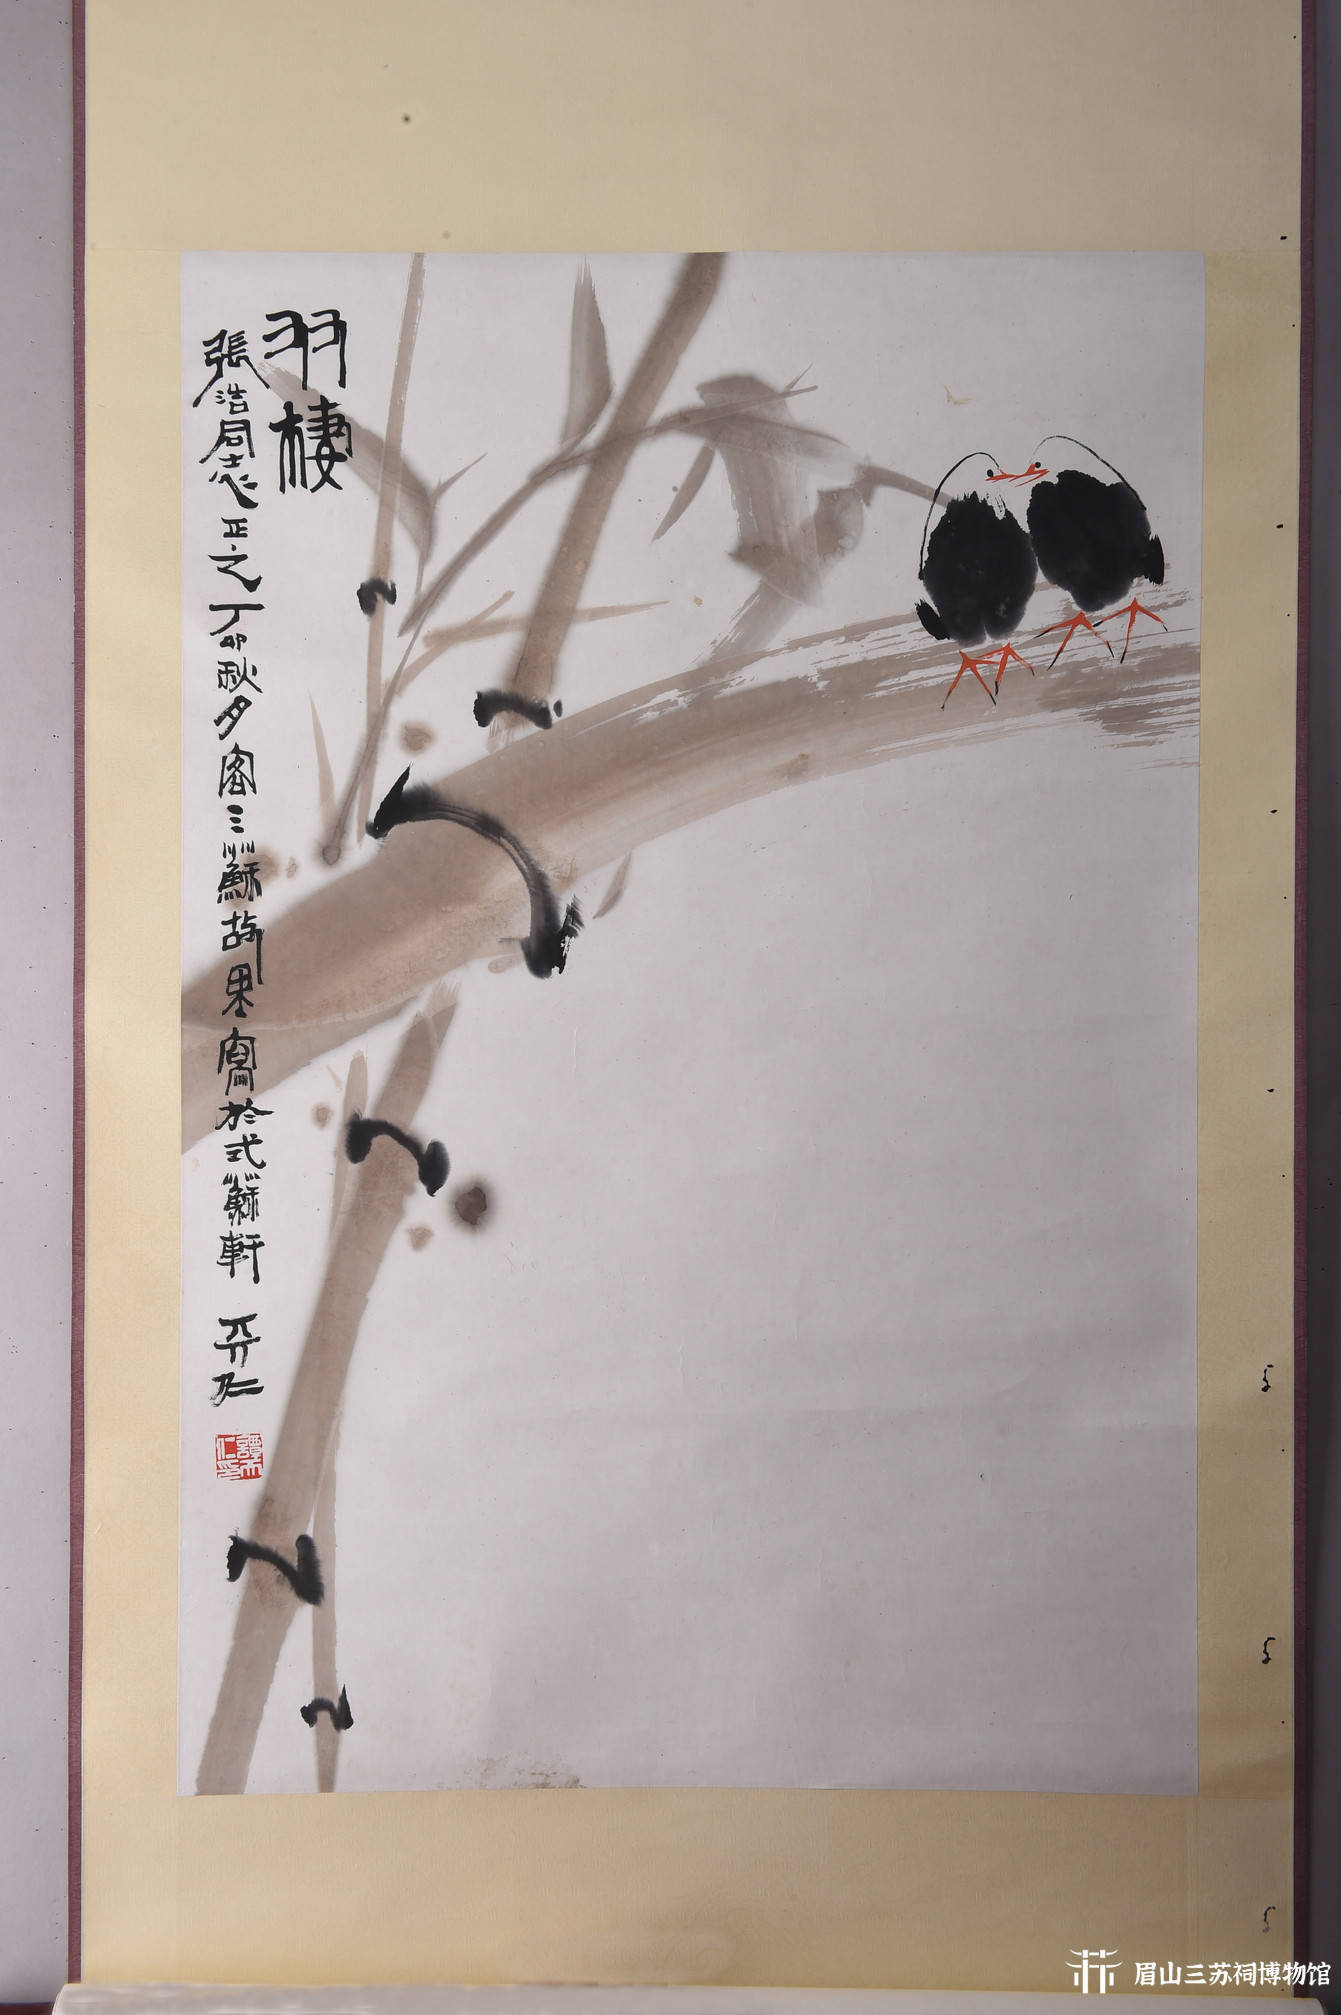 羽棲
張浩同志正之丁卯秋夕客三蘇故里寫於式蘇軒 天仁
譚天仁印
眉山三苏祠博物馆